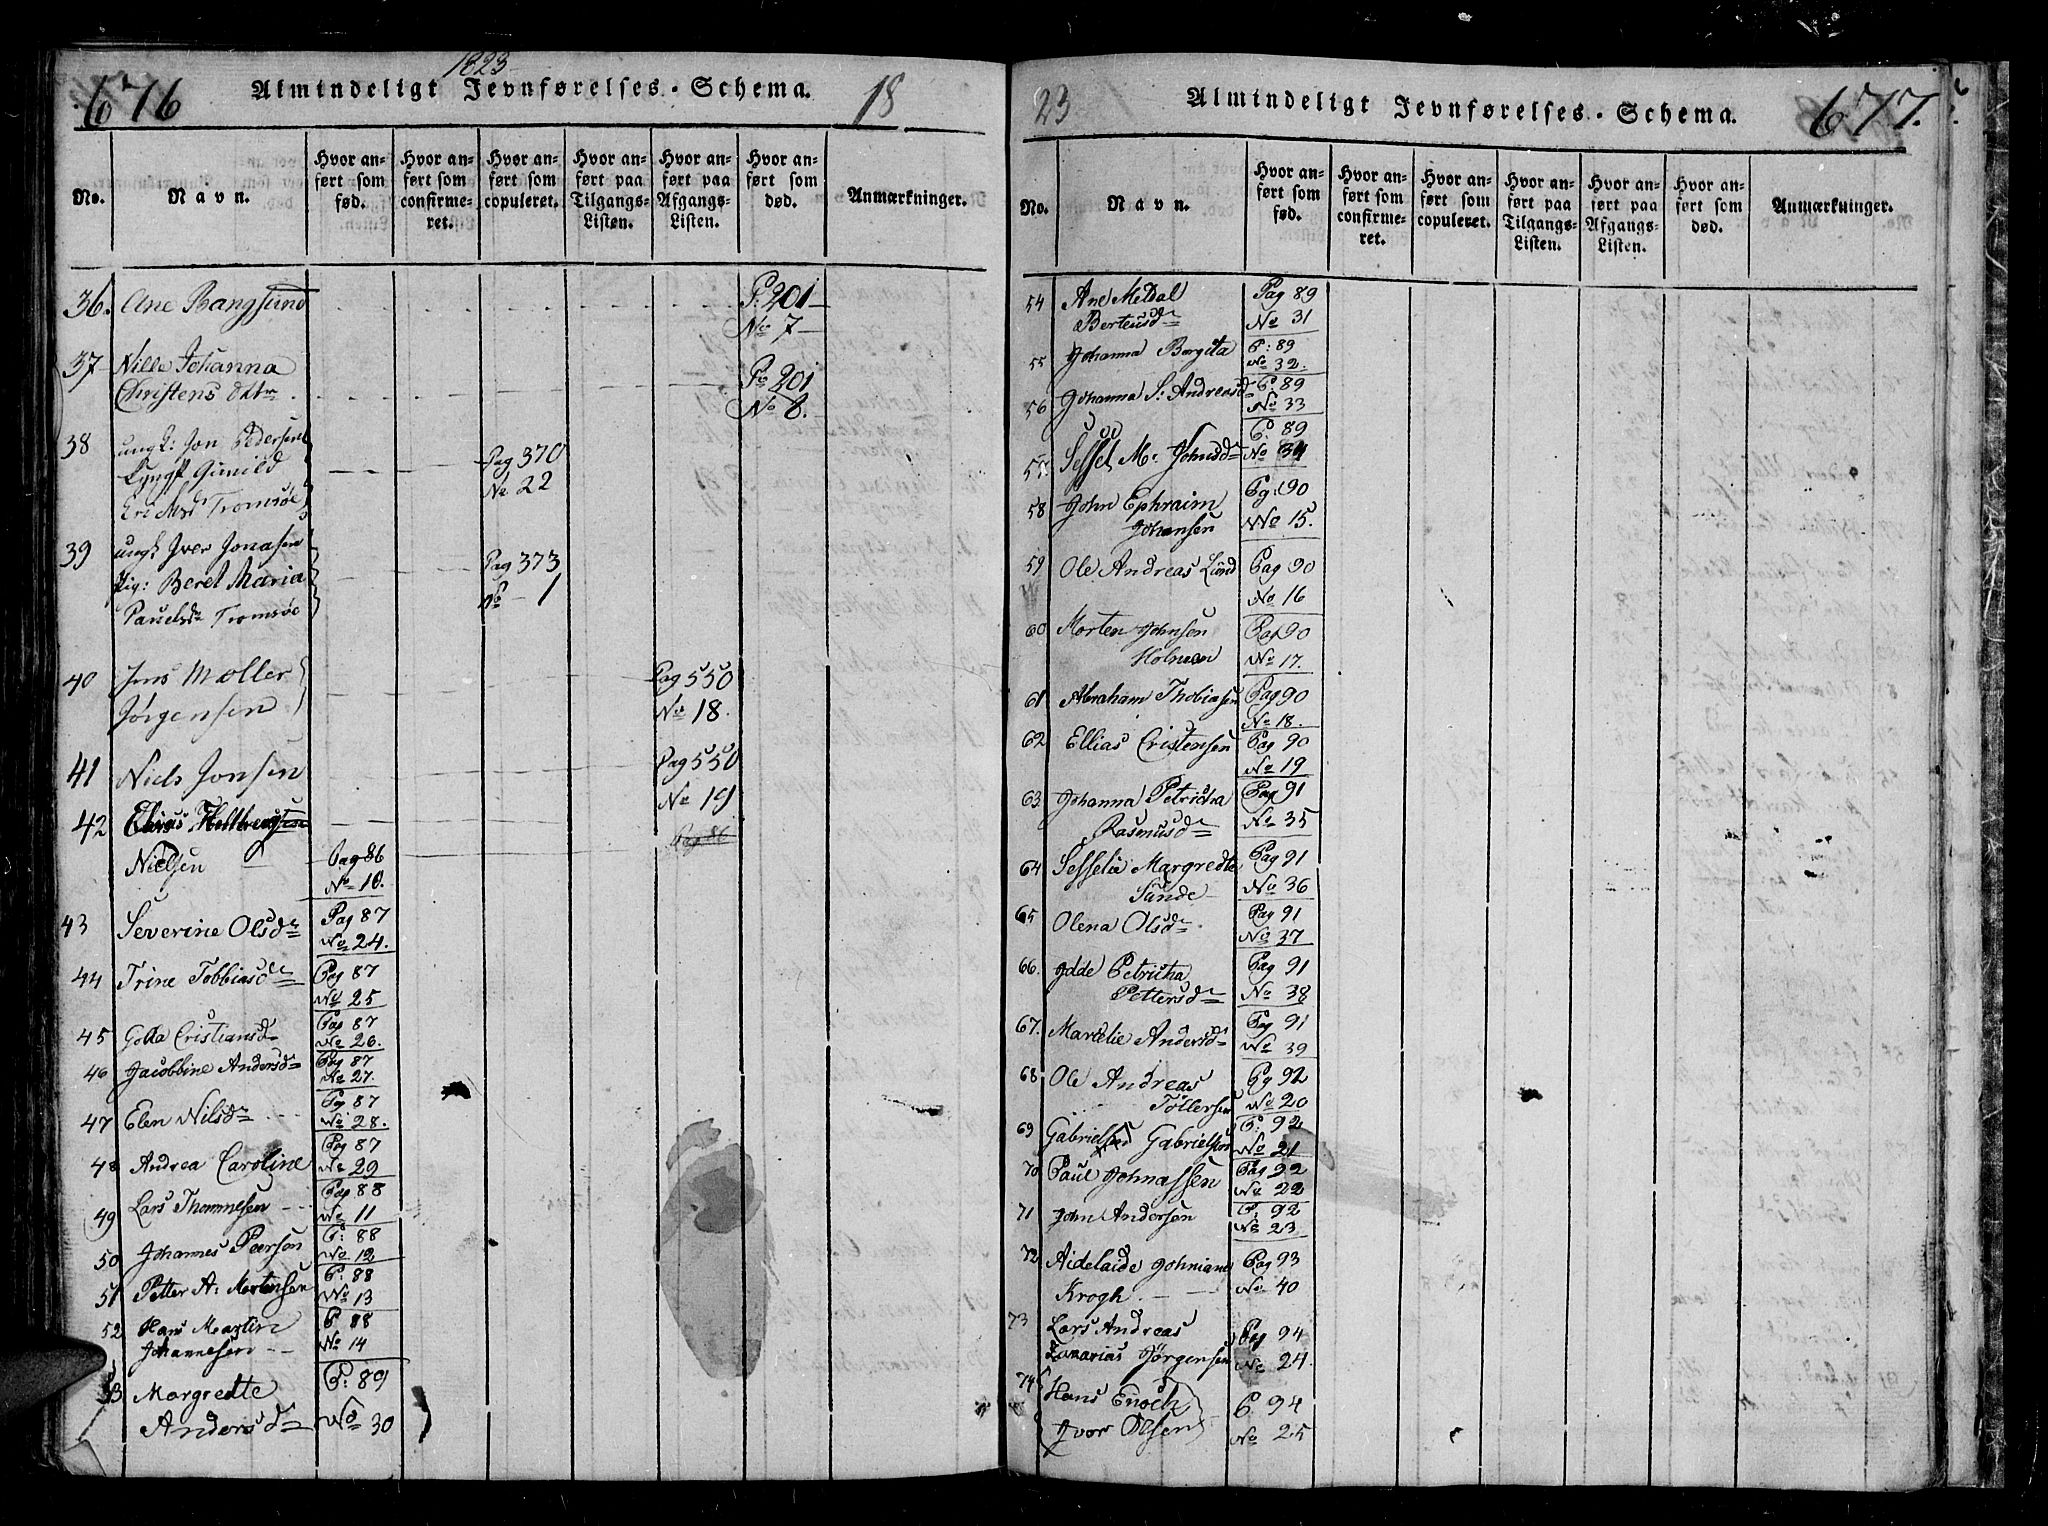 1823
676 Almindeligt Jevnførelses-Schema. 18
No. Navn. Hvor anført som fød. Hvor anført som confirmeret. Hvor anført som copuleret. Hvor anført paa Tilgangs-Listen. Hvor anført paa Afgangs-Listen. Hvor anført som død. Anmærkninger.
36. Ane Bangsund P. 201
No 7
37 Nille Johanna Pa 201
Christens Dktr No 8.
38 ungk: Jon Pedersen Pag 370
Gunild No 22
Tromsøe
39 ungk Iver Jonasen Pag 373
Pig: Beret Maria No 1
Pauelsdr Tromsøe
40 Jens Møller Pag 550
Jørgensen No 18.
41 Niels Jonsen Pag 550
No 19
42 Pag 86
Nielsen Pag 86
No 10.
43 Severine Olsdr Pag 87
No 24.
44 Trine Tobbiasdr Pag 87
No 25
45 Cristiansdr Pag 87
No 26.
46 Jacobbine Andersdr Pag 87
No 27.
47 Elen Nilsdr Pag 87
No 28.
48 Andrea Caroline Pag 87
No 29
49 Lars Thommesen Pag 88
No 11
50 Johannes Peersen P: 88
No 12
51 Petter A: Mortensen P: 88
No 13
52 Hans Martin P 88
Johannesen No 14
53 Margredte P: 89
Andersdr No 30
23 Almindeligt Jevnførelses-Schema. 677.
No. Navn. Hvor anført som fød. Hvor anført som confirmeret. Hvor anført som copuleret. Hvor anført paa Tilgangs-Listen. Hvor anført paa Afgangs-Listen. Hvor anført som død. Anmærkninger.
54 Ane Metdal Pag 89
Berteusdr No 31
55 Johanna Borgita P: 89
No 32.
56 Johanna S: Andreasdr P: 89
No 33
57 Sessel M: Johnsdr P: 89
No 34
58 John Ephraim Pg: 90
Johansen No 15.
59 Ole Andreas Lund Pag 90
No 16
60 Morten Johnsen Pag 90
Holman No 17.
61 Abraham Thobiasen Pag 90
No 18.
62 Ellias Cristensen Pag 90
No 19
63 Johanna Petricka Pag 91
Rasmusdr No 35
64 Sesselie Margredte Pag 91
Sunde No 36
65 Olena Olsdr Pag 91
No 37
66. Idde Petricka Pag 91
Pettersdr No 38
67. Marcelie Andersdr Pag 91
No 39
68 Ole Andreas Pg 92
Tollersen No 20
69 Gabriel Gabrielsen P: 92
No 21
70 Paul Johnassen Pag 92
No 22
71 John Andersen P: 92
No 23
72 Aidelaide Johniane Pag 93
Krogh No 40
73 Lars Andreas Pag 94
Zacarias Jørgensen No 24.
74 Hans Enoch P 94
Iver Olsen No 25